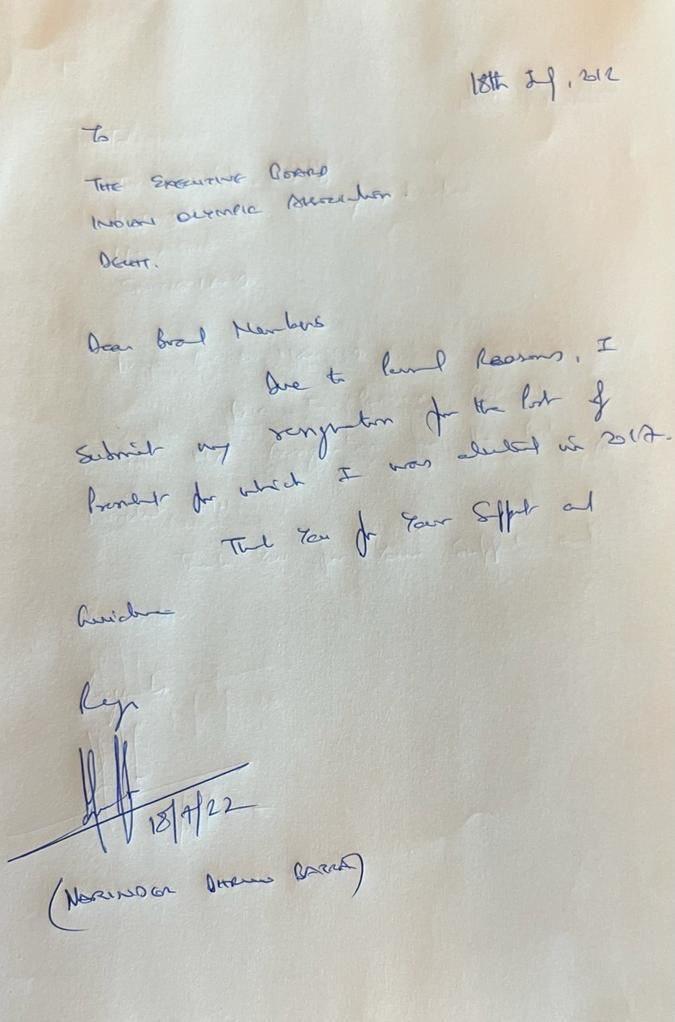 18th July, 2012
To
THE EXECUTIVE BOARD
INDIAN OLYMPIC Association.
DELHI.
Dear Board Members
Due to Personal Reasons, I
Submit my resignation for the Post of
President for which I was elected in 2017.
Thank You for Your Support and
Guidance
Regds
18/7/22
(NARINDER DHRUV BATRA)